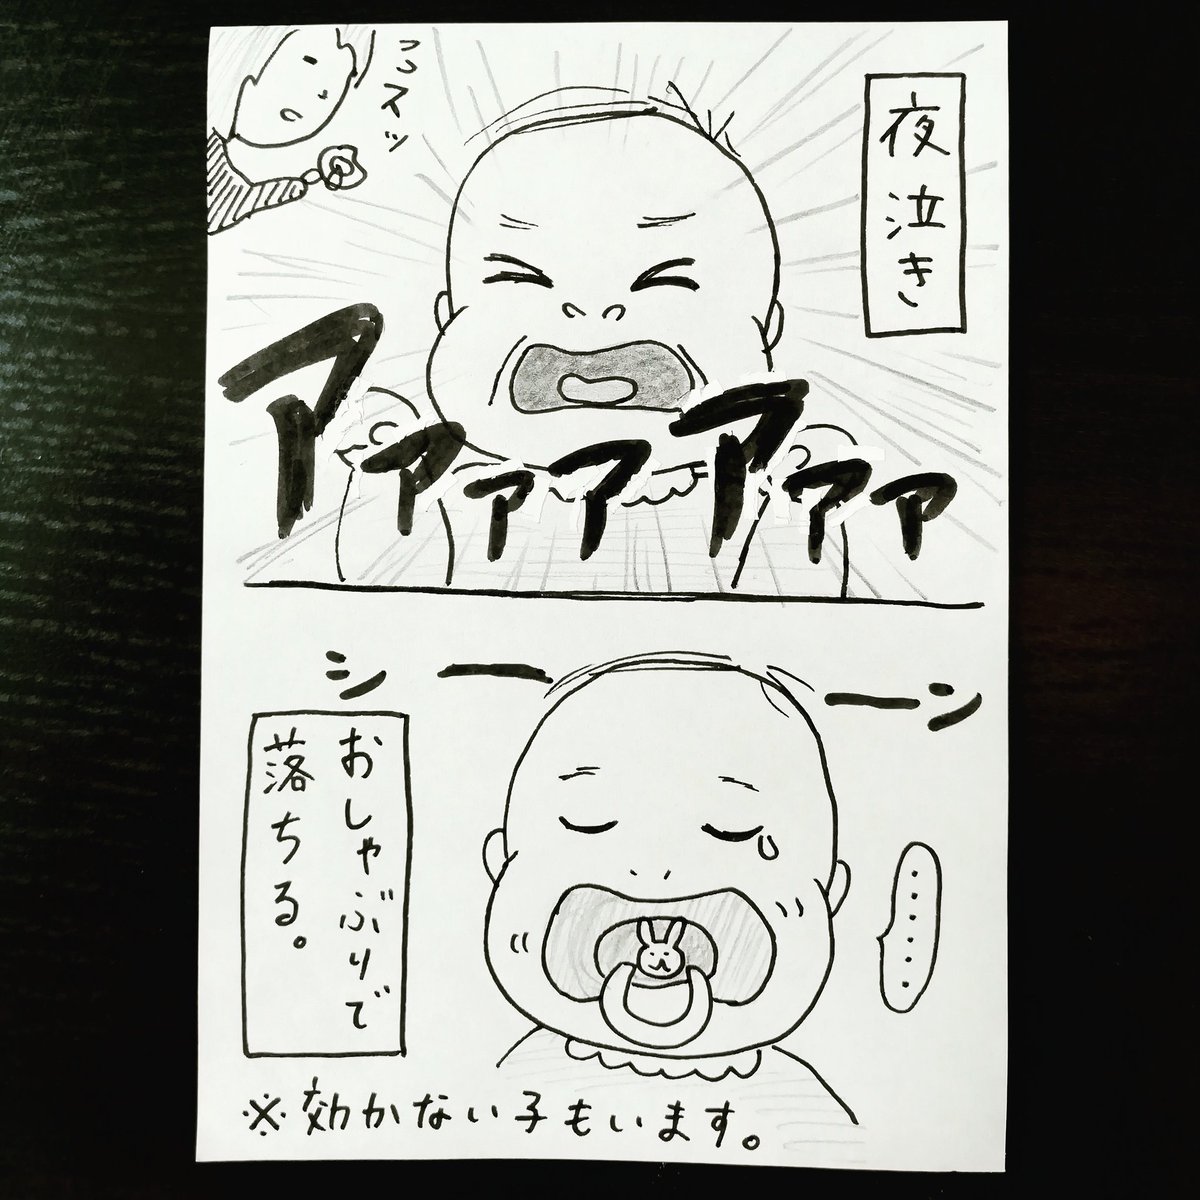 夜泣き
スッ
アァァアアァァ
シーーン
おしゃぶりで
落ちる。
……
※効かない子もいます。